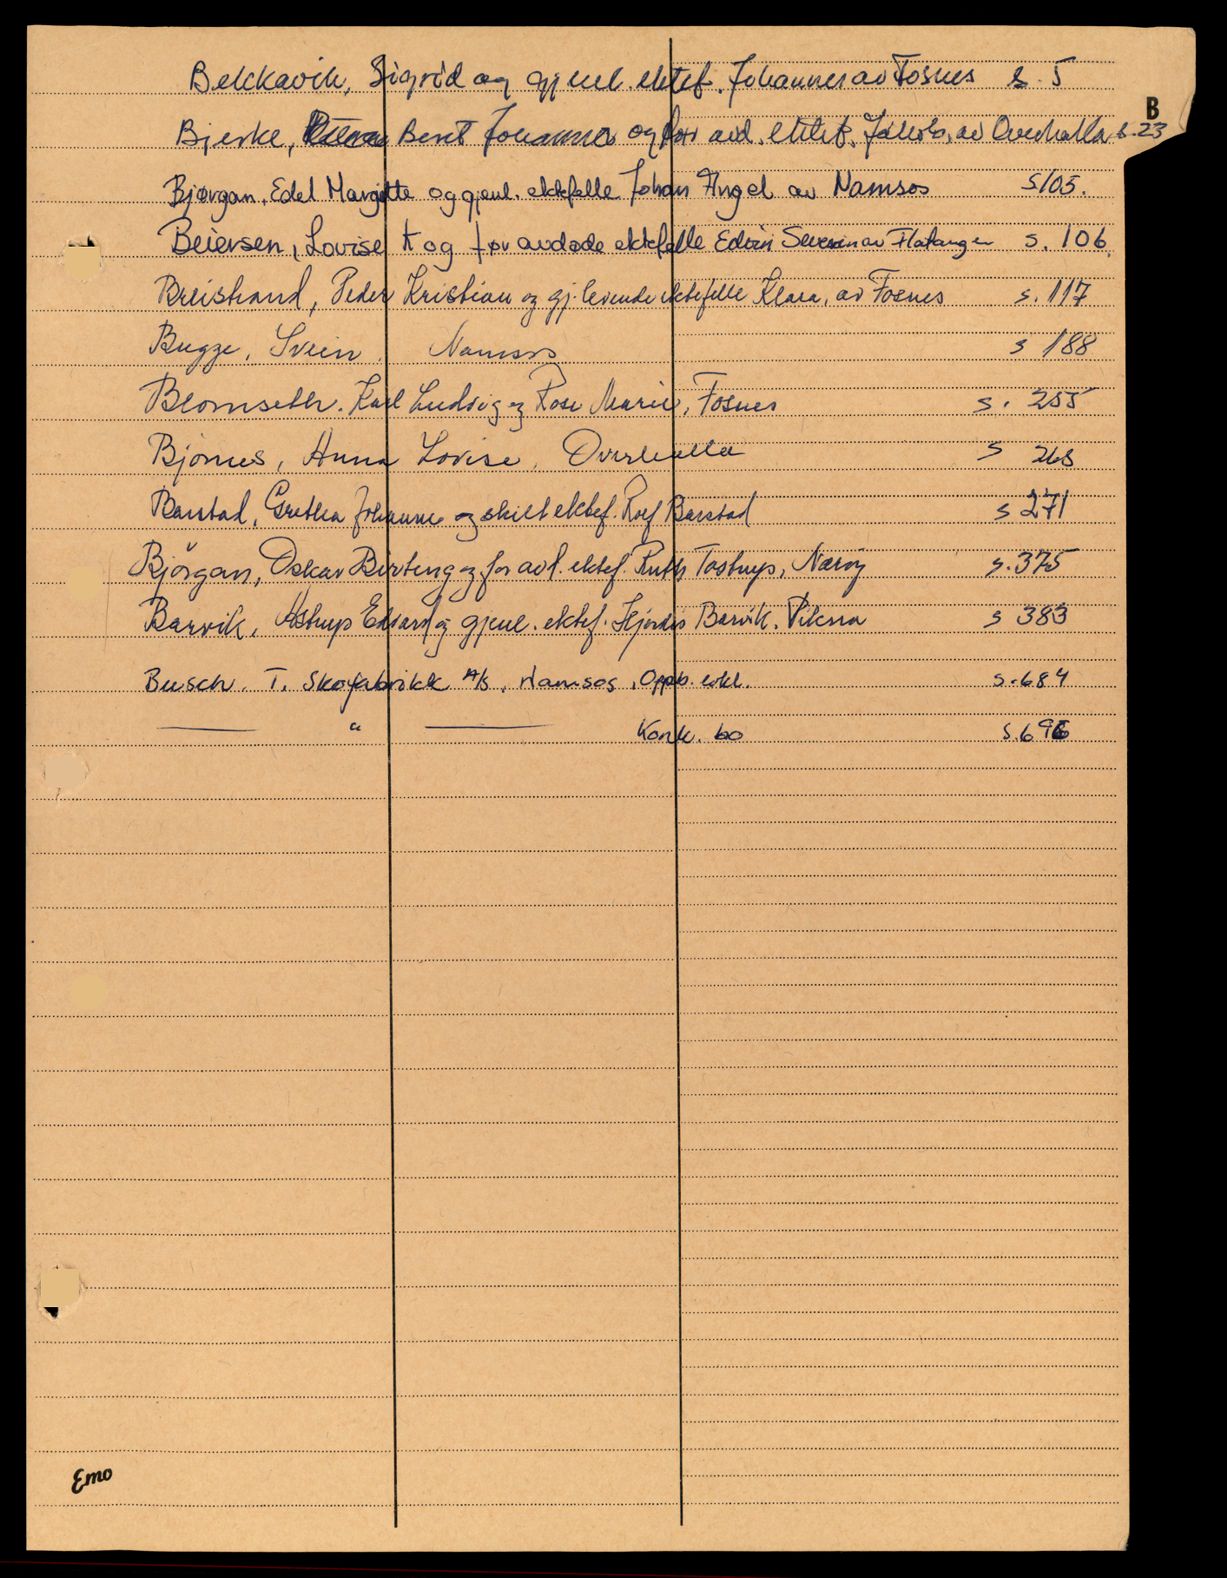 Bekkavik, Sigrid og gjenl. ektef. Johannes av Fosnes s. 5
B
Bjerke, Berit Johanna og før avd. ektef. Jakob, av Overhalla s. 23
Bjørgan, Edel Margitte og gjenl. ektefelle Johan Angel av Namsos s 105.
Beiersen, Lovise K og før avdøde ektefelle Edvin Severin av Flatanger s. 106.
Breistrand, Peder Kristian og gj. levende ektefelle Klara, av Fosnes s. 117
Bugge, Svein, Namsos s 188
Blomseth. Karl Ludvig og Rose Marie, Fosnes s. 255
Bjørnes, Anna Lovise, Overhalla s 268
Barstad, Gretha Johanne og skilt ektef. Rolf Barstad s 271
Bjørgan, Oskar Birting og før avd. ektef. Ruth Tostrup, Nærøy s. 375
Barvik, Astrup Edvard og gjenl. ektef. Hjørdis Barvik. Vikna s 383
Busch. T. Skofabrikk A/S, Namsos, Oppb. erkl. s. 684
——— " ——— Konk. bo s. 696
Emo